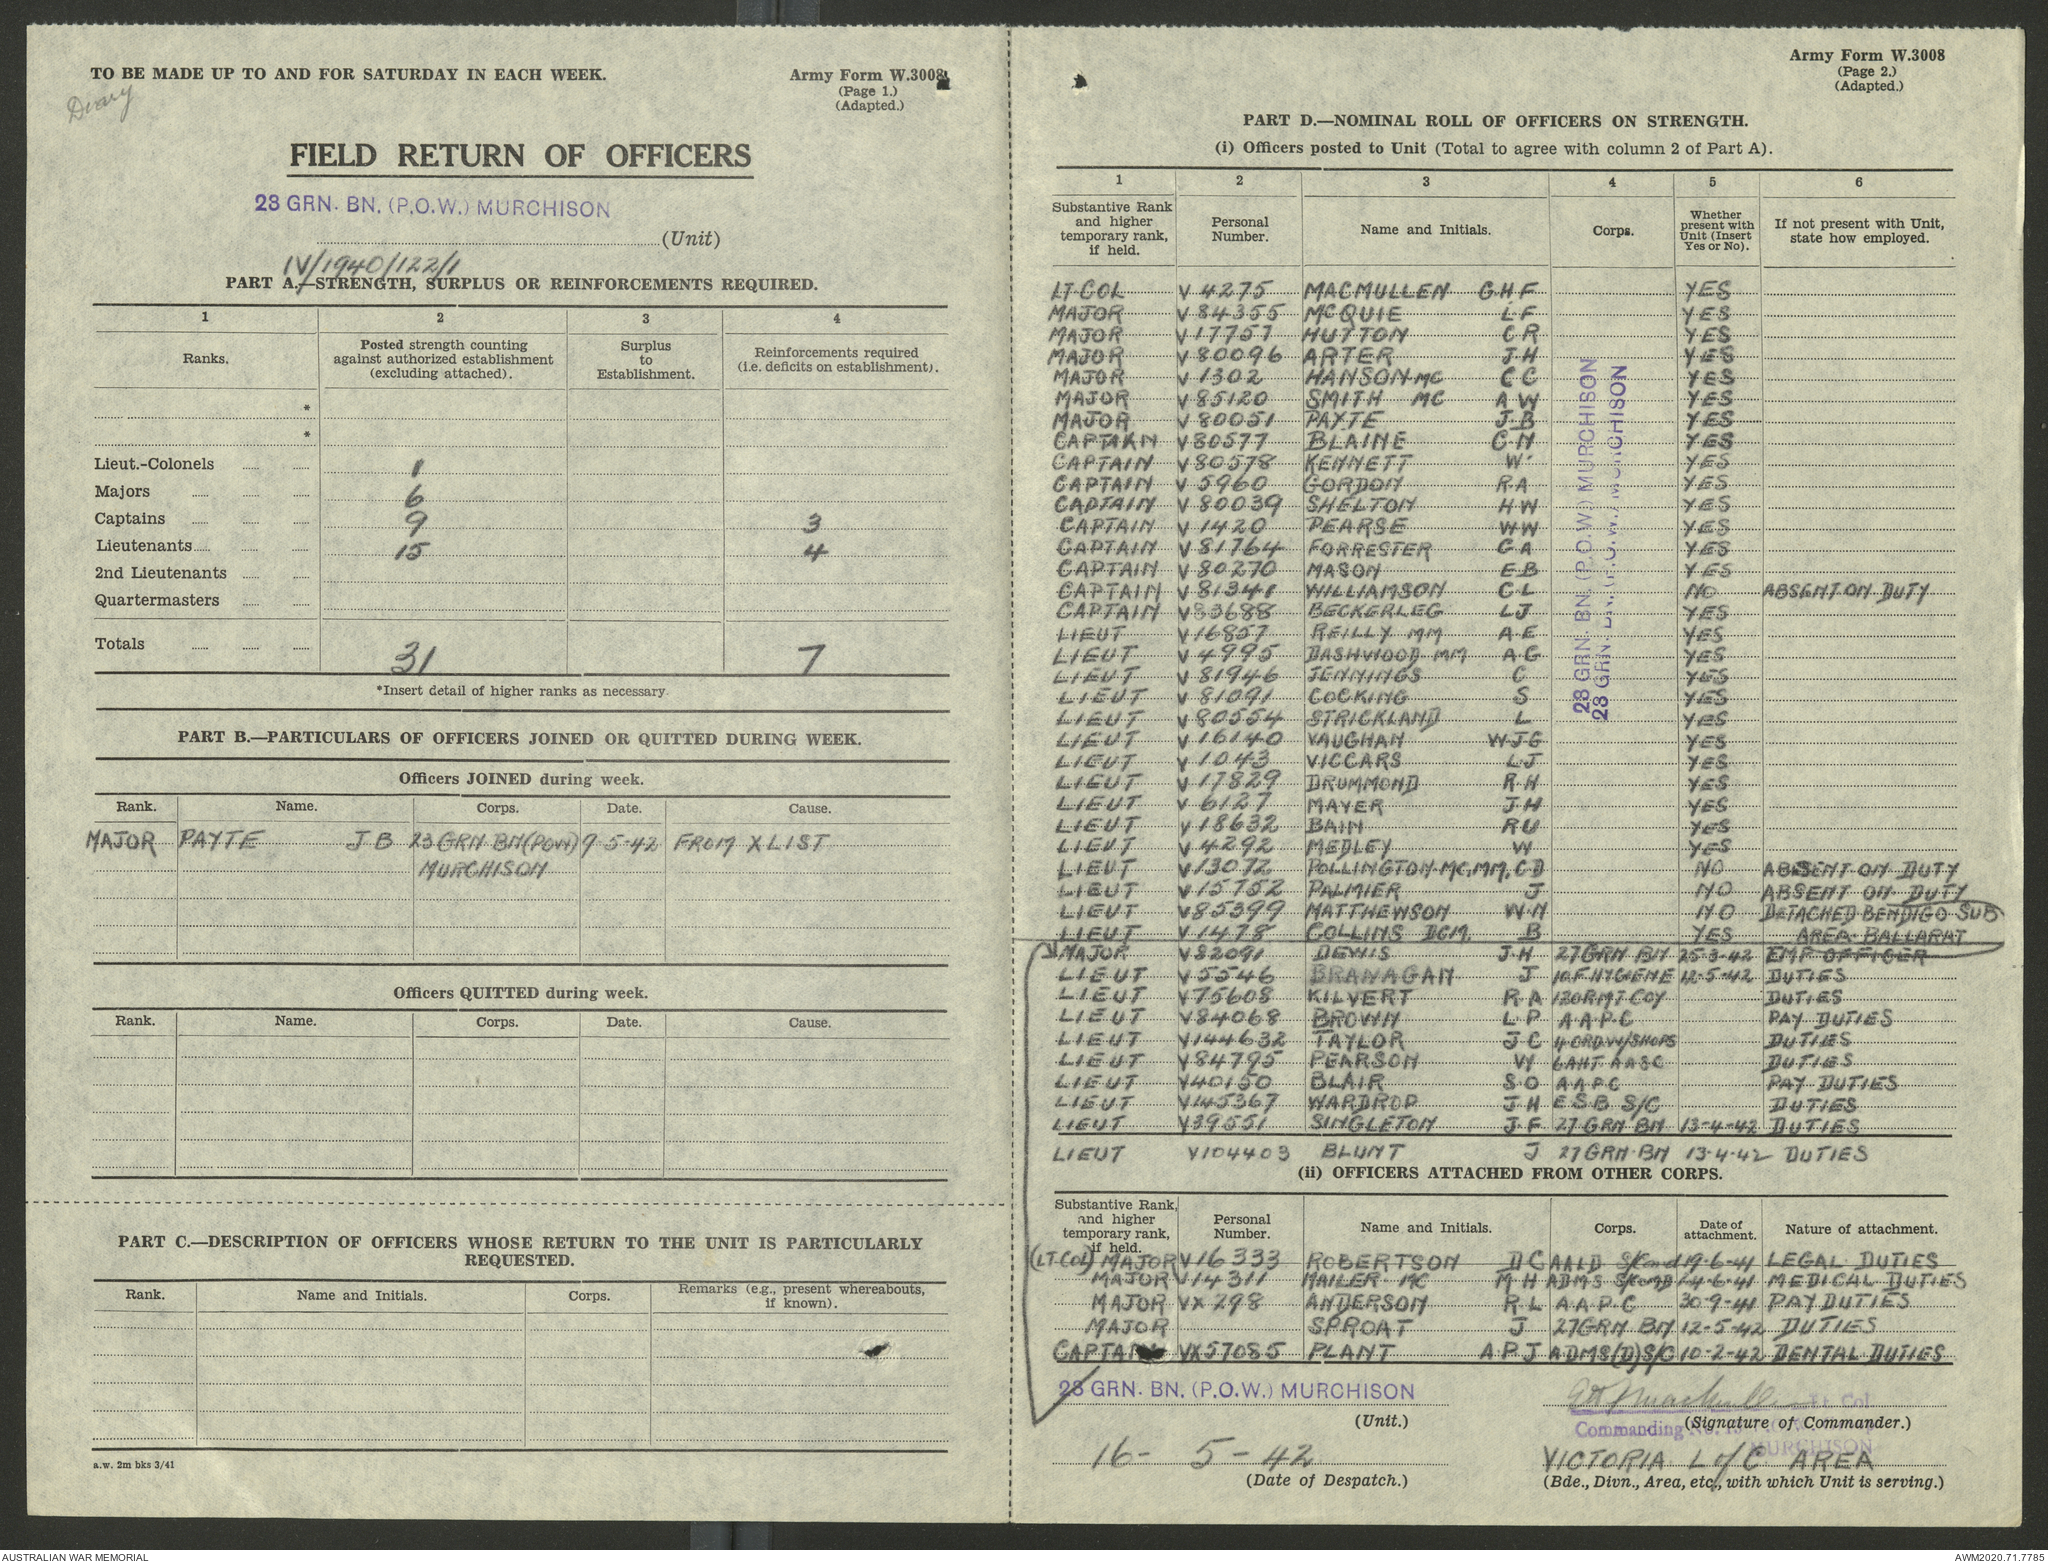 TO BE MADE UP TO AND FOR SATURDAY IN EACH WEEK.
Army Form W.3008
(Page 1.)
(Adapted.)
Diary
FIELD RETURN OF OFFICERS
28 GRN. BN. (P.O.W.) MURCHISON
(Unit)
IV/1940/122/1
PART A.—STRENGTH, SURPLUS OR REINFORCEMENTS REQUIRED.
1 2 3 4
Ranks. Posted strength counting against authorized establishment (excluding attached). Surplus to Establishment. Reinforcements required (i.e. deficits on establishment).
*
*
Lieut.-Colonels 1
Majors 6
Captains 9 3
Lieutenants 15 4
2nd Lieutenants
Quartermasters
Totals 31 7
*Insert detail of higher ranks as necessary.
PART B.—PARTICULARS OF OFFICERS JOINED OR QUITTED DURING WEEK.
Officers JOINED during week.
Rank. Name. Corps. Date. Cause.
MAJOR PAYTE J B 23 GRN BN (POW) 9-5-42 FROM X LIST
MURCHISON
Officers QUITTED during week.
Rank. Name. Corps. Date. Cause.
PART C.—DESCRIPTION OF OFFICERS WHOSE RETURN TO THE UNIT IS PARTICULARLY
REQUESTED.
Rank. Name and Initials. Corps. Remarks (e.g., present whereabouts, if known).
a.w. 2m bks 3/41
Army Form W.3008
(Page 2.)
(Adapted.)
PART D.—NOMINAL ROLL OF OFFICERS ON STRENGTH.
(i) Officers posted to Unit (Total to agree with column 2 of Part A).
1 2 3 4 5 6
Substantive Rank and higher temporary rank, if held. Personal Number. Name and Initials. Corps. Whether present with Unit (Insert Yes or No). If not present with Unit, state how employed.
LT COL V 4275 MACMULLEN G H F YES
MAJOR V 84355 McQUIE L F YES
MAJOR V 17757 HUTTON C R YES
MAJOR V 80096 ARTER J H YES
MAJOR V 1302 HANSON MC C C YES
MAJOR V 85120 SMITH MC A W YES
MAJOR V 80051 PAYTE J B YES
CAPTAIN V 80577 BLAINE C N YES
CAPTAIN V 80578 KENNETT W YES
CAPTAIN V 5960 GORDON R A YES
CAPTAIN V 80039 SHELTON H W YES
CAPTAIN V 1420 PEARSE W W YES
CAPTAIN V 81764 FORRESTER G A YES
CAPTAIN V 80270 MASON E B YES
CAPTAIN V 81341 WILLIAMSON C L NO ABSENT ON DUTY
CAPTAIN V 83688 BECKERLEG L J YES
LIEUT V 16857 REILLY MM A E YES
LIEUT V 4995 DASHWOOD MM A G YES
LIEUT V 81946 JENNINGS C YES
LIEUT V 81091 COCKING S YES
LIEUT V 80554 STRICKLAND L YES
LIEUT V 16140 VAUGHAN W J G YES
LIEUT V 1043 VICCARS L J YES
LIEUT V 17829 DRUMMOND R H YES
LIEUT V 6127 MAYER J H YES
LIEUT V 18632 BAIN R U YES
LIEUT V 4292 MEDLEY W YES
LIEUT V 13072 POLLINGTON MC, MM, C D NO ABSENT ON DUTY
LIEUT V 15752 PALMIER J NO ABSENT ON DUTY
LIEUT V 85399 MATTHEWSON W N NO DETACHED BENDIGO SUB
LIEUT V 1478 COLLINS DCM B YES AREA BALLARAT
MAJOR V 82091 DEWIS J H 27 GRN BN 25-3-42 EMP OFFICER
LIEUT V 5546 BRANAGAN J 10 F HYGIENE 12-5-42 DUTIES
LIEUT V 75608 KILVERT R A 120 RMT COY DUTIES
LIEUT V 84068 BROWN L P A A P C PAY DUTIES
LIEUT V 144632 TAYLOR J C 4 ORD W/SHOPS DUTIES
LIEUT V 84795 PEARSON W 6 AHT AASC DUTIES
LIEUT V 40150 BLAIR S O A A P C PAY DUTIES
LIEUT V 145367 WARDROP J H E S B S/C DUTIES
LIEUT V 39551 SINGLETON J F 27 GRN BN 13-4-42 DUTIES
LIEUT V 104403 BLUNT J 27 GRN BN 13-4-42 DUTIES
28 GRN. BN. (P.O.W.) MURCHISON
28 GRN. BN. (P.O.W.) MURCHISON
(ii) OFFICERS ATTACHED FROM OTHER CORPS.
Substantive Rank, and higher temporary rank, if held. Personal Number. Name and Initials. Corps. Date of attachment. Nature of attachment.
(LT COL) MAJOR V 16333 ROBERTSON D C AALD S/Comd 19-6-41 LEGAL DUTIES
MAJOR V 14311 MAILER MC M H ADMS S/COMD 4-6-41 MEDICAL DUTIES
MAJOR VX 298 ANDERSON R L A A P C 30-9-41 PAY DUTIES
MAJOR SPROAT J 27 GRN BN 12-5-42 DUTIES
CAPTAIN VX57085 PLANT A P J ADMS(D) S/C 10-2-42 DENTAL DUTIES
28 GRN. BN. (P.O.W.) MURCHISON
(Unit.)
Lt. Col
(Signature of Commander.)
Commanding No. 13
MURCHISON
16 - 5 - 42
(Date of Despatch.)
VICTORIA L of C AREA
(Bde., Divn., Area, etc., with which Unit is serving.)
AUSTRALIAN WAR MEMORIAL
AWM2020.71.7785